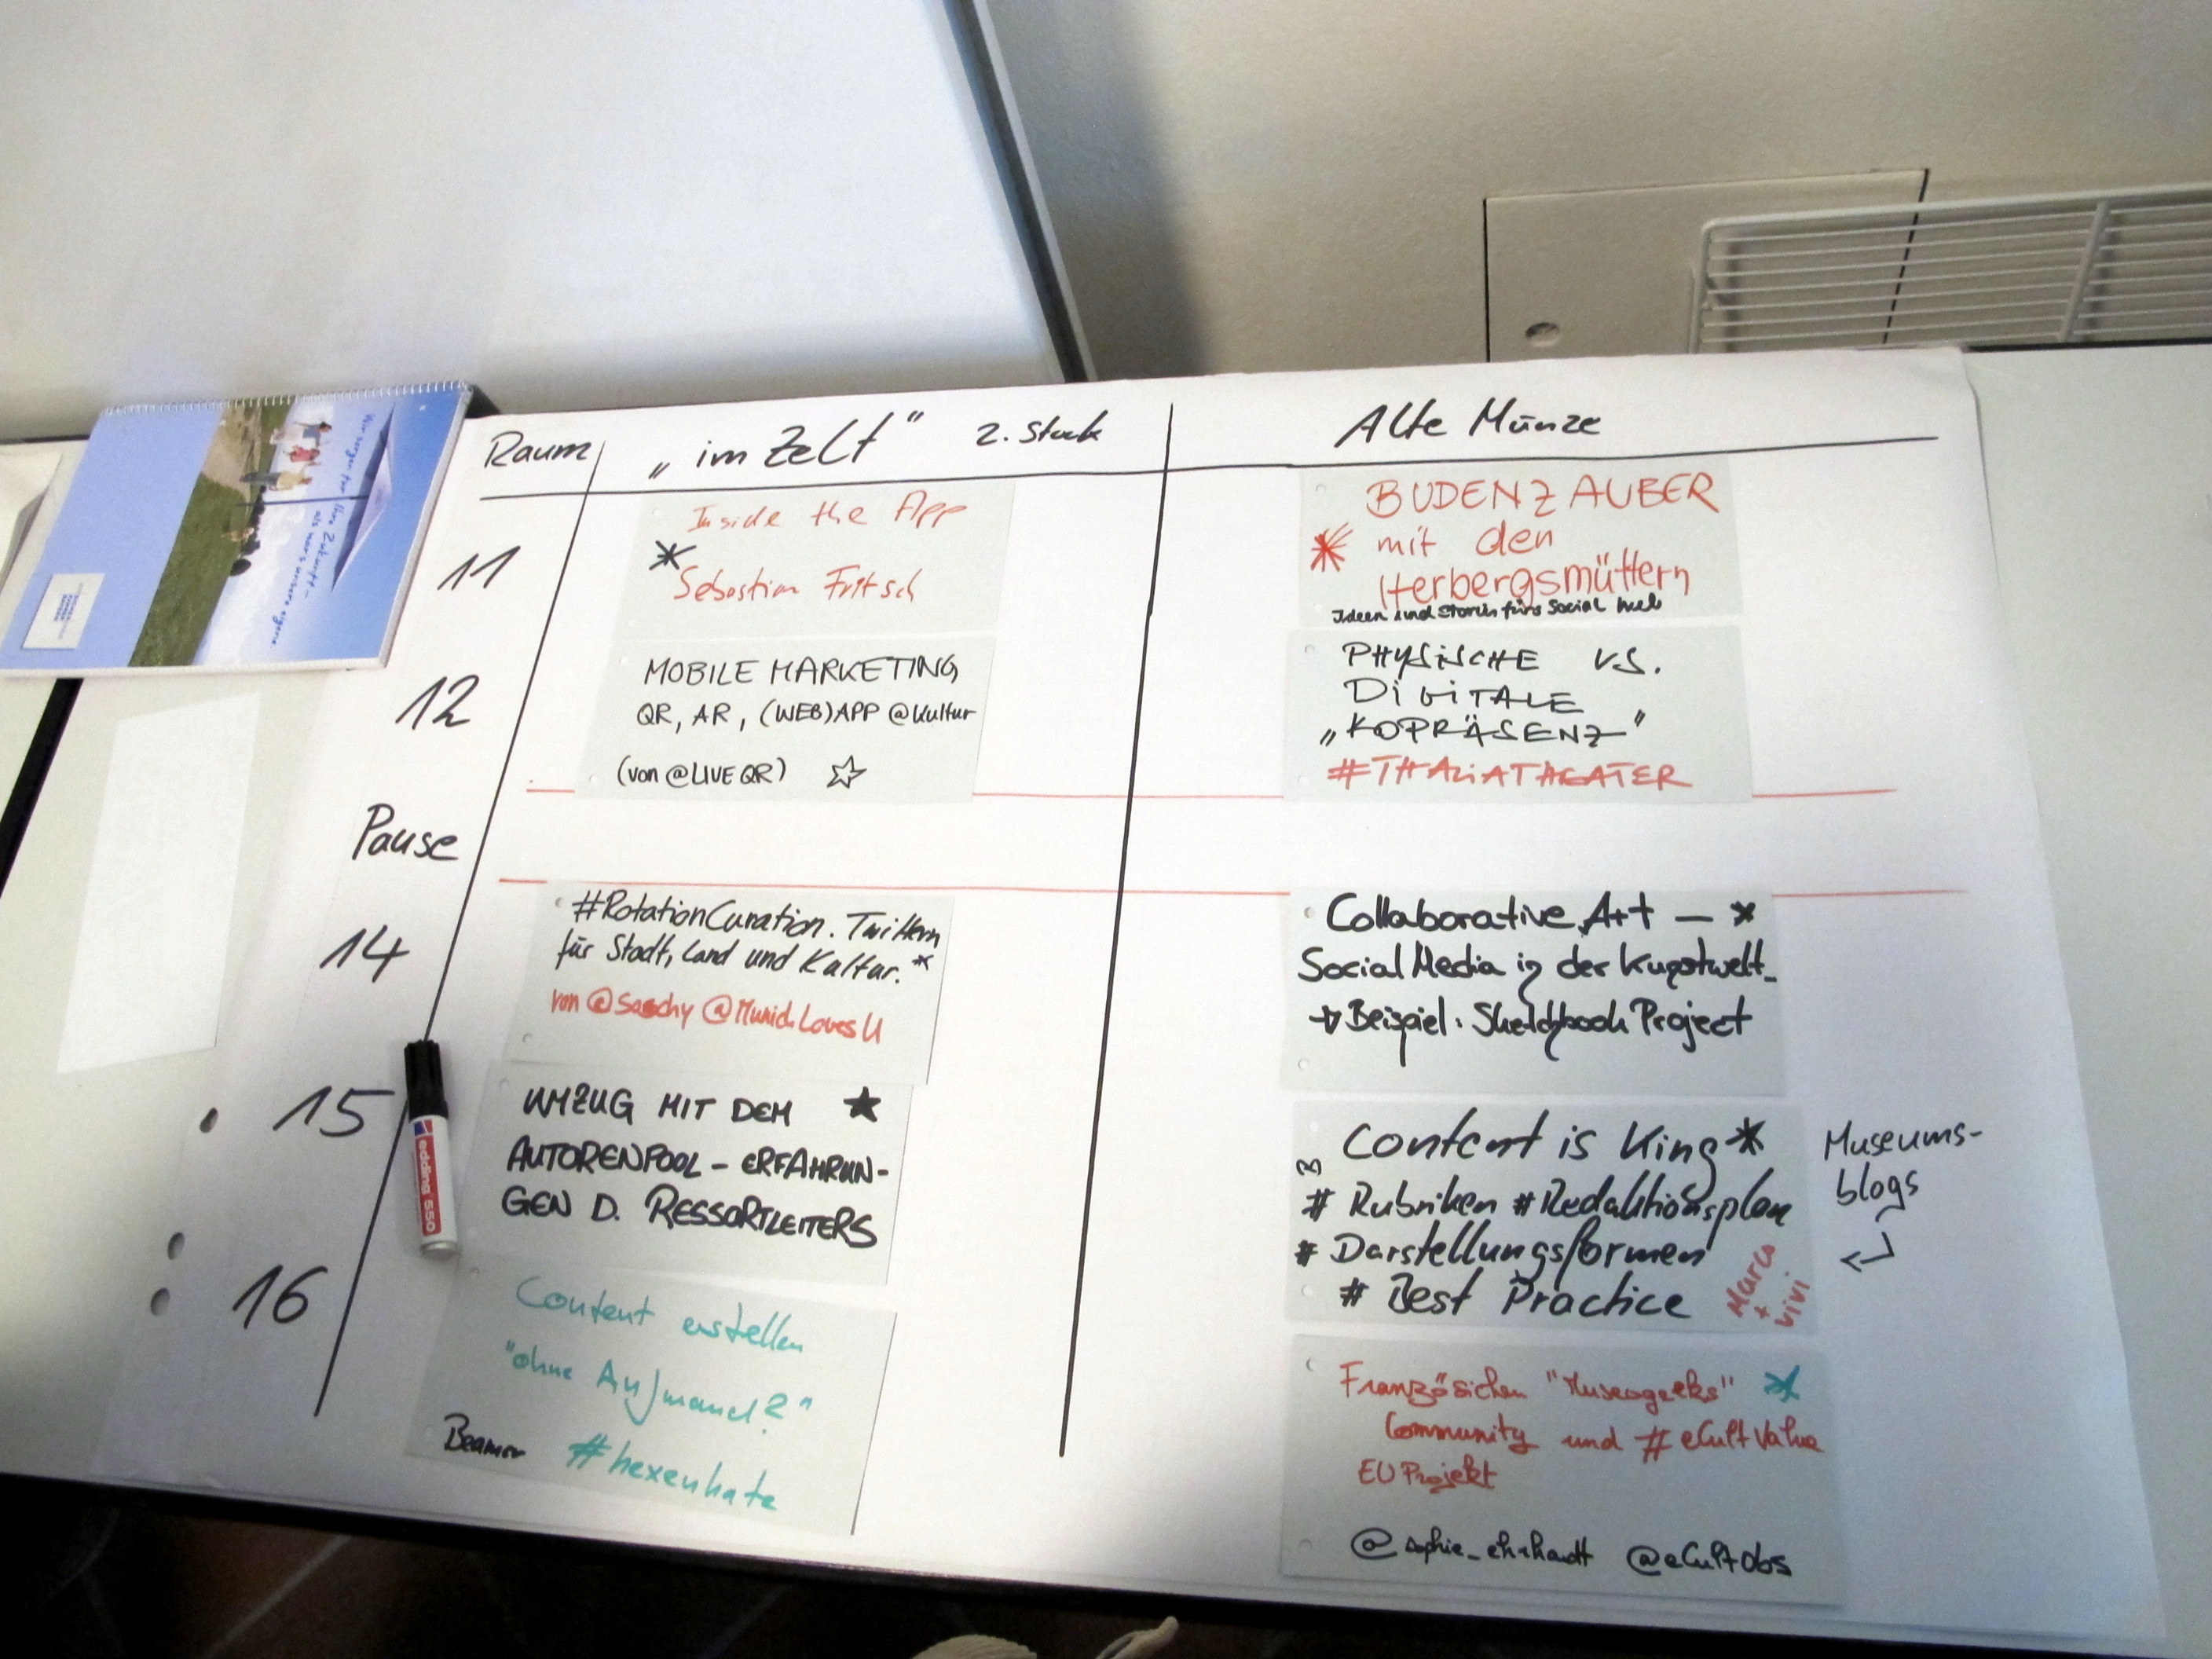 Raum
„im Zelt“ 2. Stock
Alte Münze
11
Inside the App
Sebastian Fritsch
BUDENZAUBER
mit den
Herbergsmüttern
Ideen und Stories fürs Social Web
12
MOBILE MARKETING
QR, AR, (WEB)APP @Kultur
(von @LIVEQR)
PHYSISCHE V.S.
DIGITALE
„KOPRÄSENZ“
#THALIATHEATER
Pause
14
#RotationCuration. Twittern
für Stadt, Land und Kultur.*
von @Saschy @MunichLovesU
Collaborative Art –
Social Media in der Kunstwelt
Beispiel: Sketchbook Project
15
UMZUG MIT DEM
AUTORENPOOL – ERFAHRUN-
GEN D. RESSORTLEITERS
Content is King
# Rubriken #Redaktionsplan
# Darstellungsformen
# Best Practice
Marco
+
Vivi
Museums-
blogs
16
Content erstellen
"ohne Aufwand?"
Beamer #hexenkate
Französichen "Museogeeks"
Community und #eCultValue
EU Projekt
@sophie_ehrhardt @eCultObs
edding 550